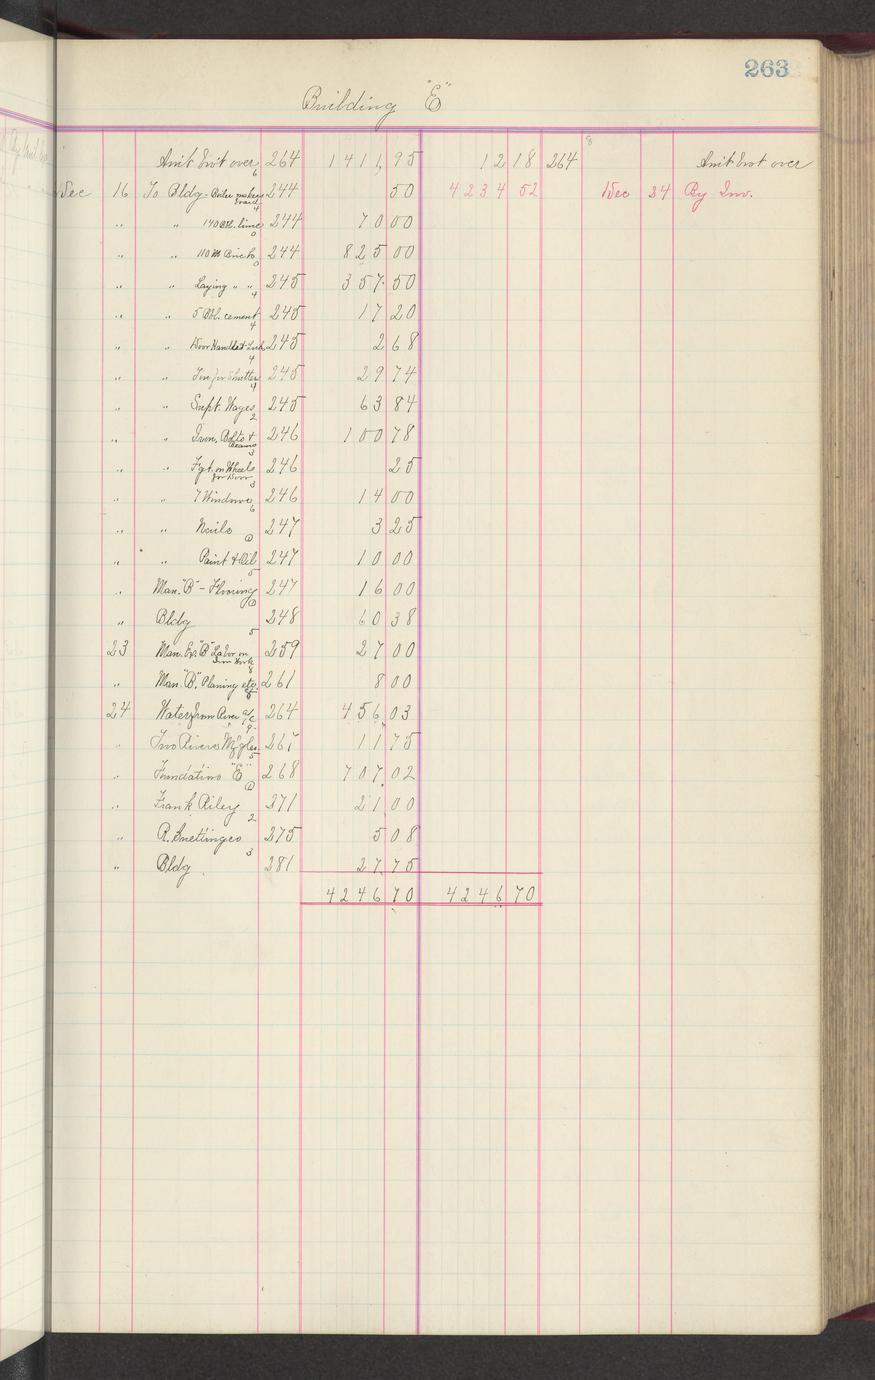 263
Building "E"
Amt bro't over 264 1411,95 12 18 264 Amt bro't over
Dec 16 To Bldg - 244 50 4234 52 Dec 24 By Inv.
" " 140 Bbl. lime 244 70 00
" " 110 M Brick 244 825 00
" " Laying " " 245 357.50
" " 5 Bbl. cement 245 17 20
" " Door Handle & Lock 245 2 68
" " Tin for Shutters 245 29 74
" " Supt. Wages 245 63 84
" " Iron, Bolts & Beams 246 100 78
" " Fgt. on Wheels for Door 246 25
" " 7 Windows 246 14 00
" " Nails 247 3 25
" " Paint & Oil 247 10 00
" Man. "B" - Flooring 247 16 00
" Bldg 248 60 38
23 Man. Ex. "B" Labor on Iron Work 259 27 00
" Man. "B", Planing etc. 261 8 00
24 Water from River a/c 264 456,03
" Two Rivers Mf'g Co. 267 11 75
" Foundation "E" 268 707,02
" Frank Riley 271 21 00
" R. 275 5 08
" Bldg 281 27,75
4246 70 4246 70